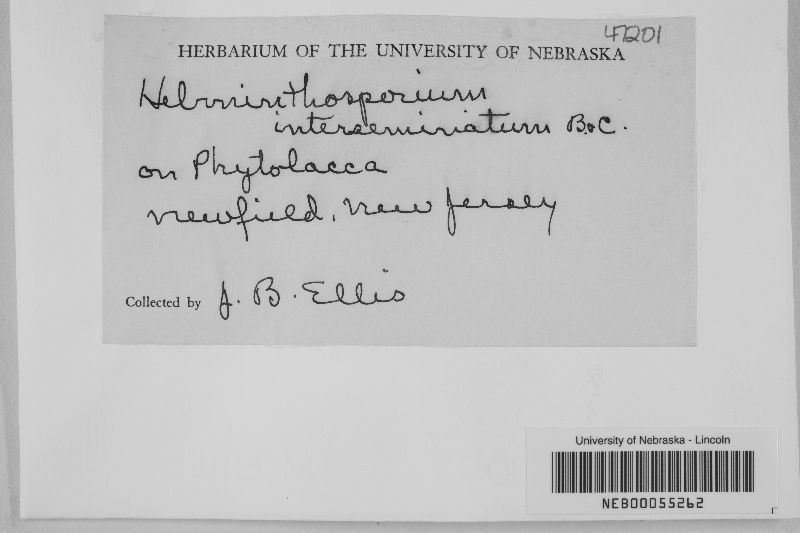 47201
HERBARIUM OF THE UNIVERSITY OF NEBRASKA
Helminthosporium
interseminatum B&C.
on Phytolacca
Newfield, New Jersey
Collected by J. B. Ellis
University of Nebraska - Lincoln
NEB00055262